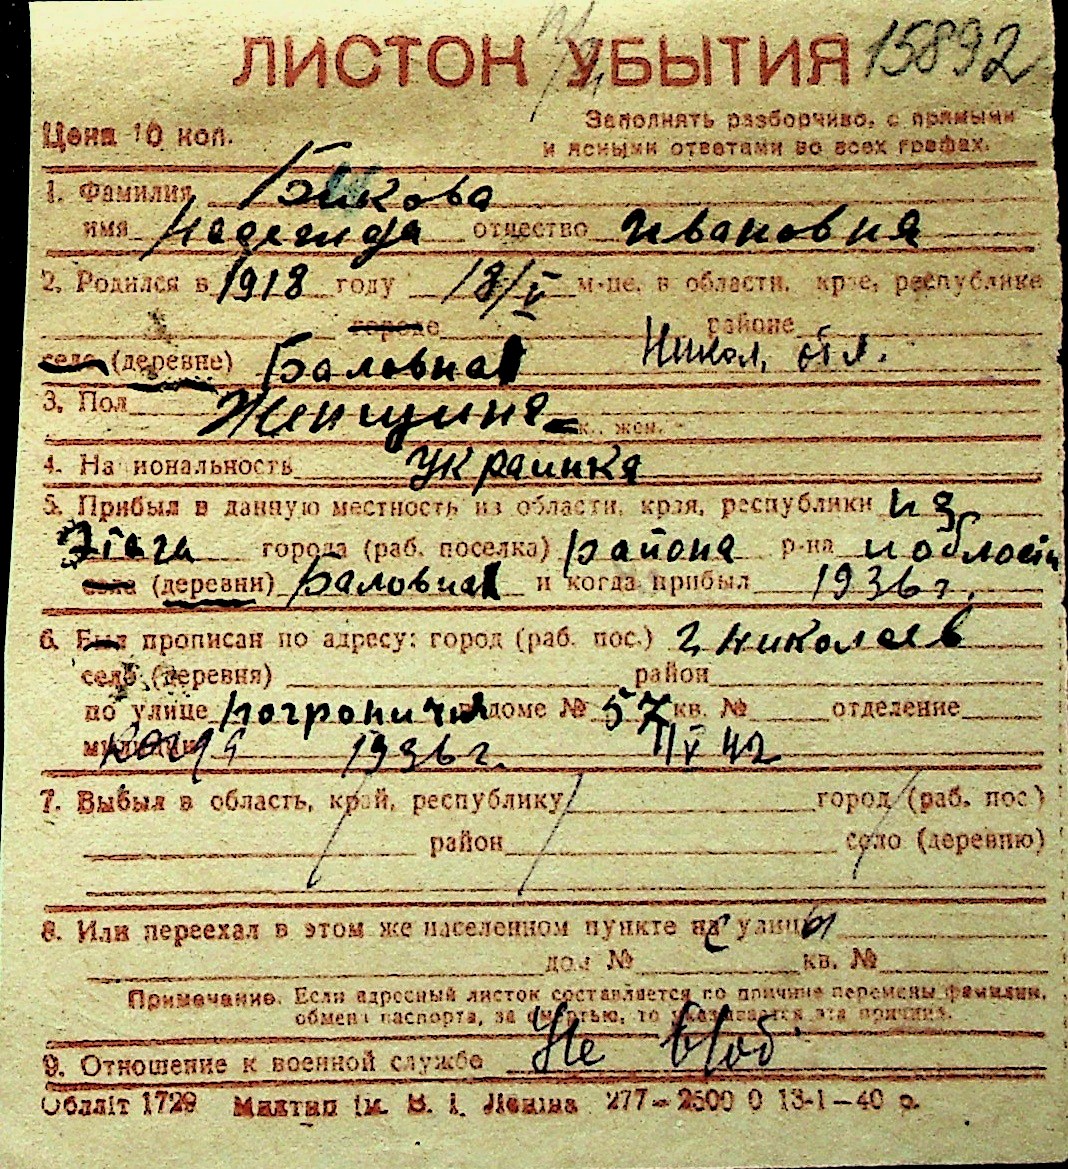 ЛИСТОК УБЫТИЯ 15892
Цена 10 коп.
Заполнять разборчиво, с прямыми
и ясными ответами во всех графах.
1. Фамилия Быкова
имя Надежда отчество Ивановня
2. Родился в 1918 году 18/V м-це, в области, крае, республике
городе районе Никол. обл.
село (деревне) Баловная
3. Пол Женщиня к., жен.
4. Национальность украинка
5. Прибыл в данную местность из области, края, республики из
Этага города (раб. поселка) района р-на и области
села (деревни) Баловная и когда прибыл 1936 г.
6. Был прописан по адресу: город (раб. пос.) г. Николаев
село (деревня) район
по улице погронична доме № 57 кв. № отделение
милиции 1936 г. 11 V 42
7. Выбыл в область, край, республику город (раб. пос.)
район село (деревню)
8. Или переехал в этом же населенном пункте на с улицы
дом № кв. №
Примечание. Если адресный листок составляется по причине перемены фамилии,
обмена паспорта, за смертью, то указывается эта причина.
9. Отношение к военной службе Не
Обллiт 1729 Миктип iм. В. I. Ленiна 277—2500 0 13-1—40 р.